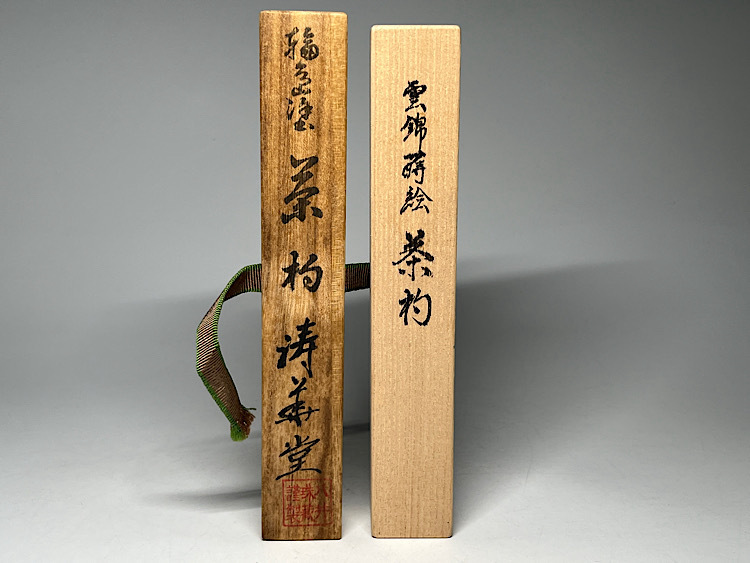 輪島塗 茶杓 華堂
謹製
雲錦蒔絵 茶杓